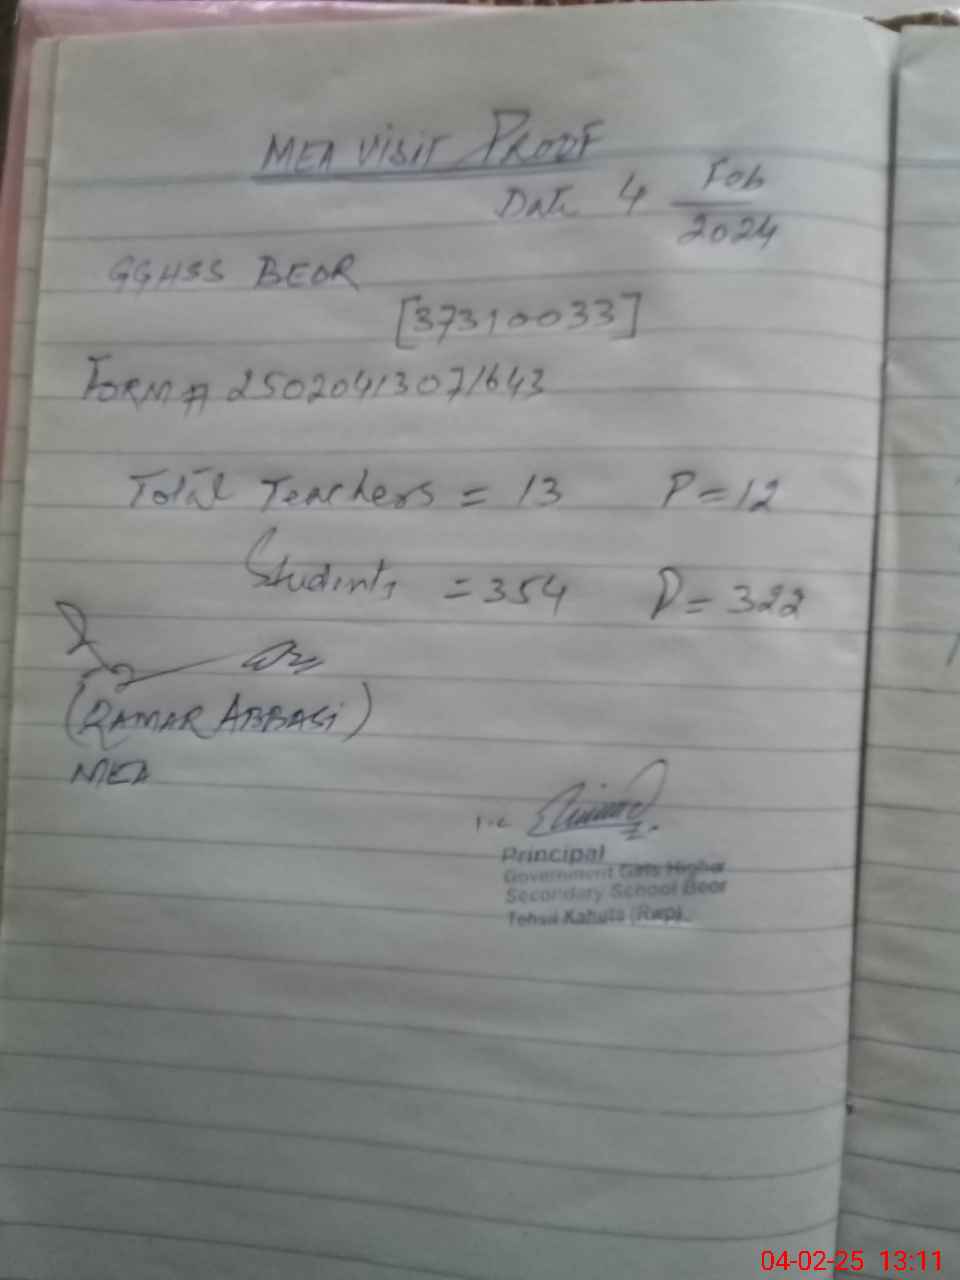 MEA VISIT PROOF
Date 4 Feb
2024
GGHSS BEOR
[37310033]
FORM # 25020413071643
Total Teachers = 13 P = 12
Students = 354 P = 322
(QAMAR ABBASI)
MEA
Principal
Government Girls Higher
Secondary School Beor
Tehsil Kahuta (Rwp).
04-02-25 13:11